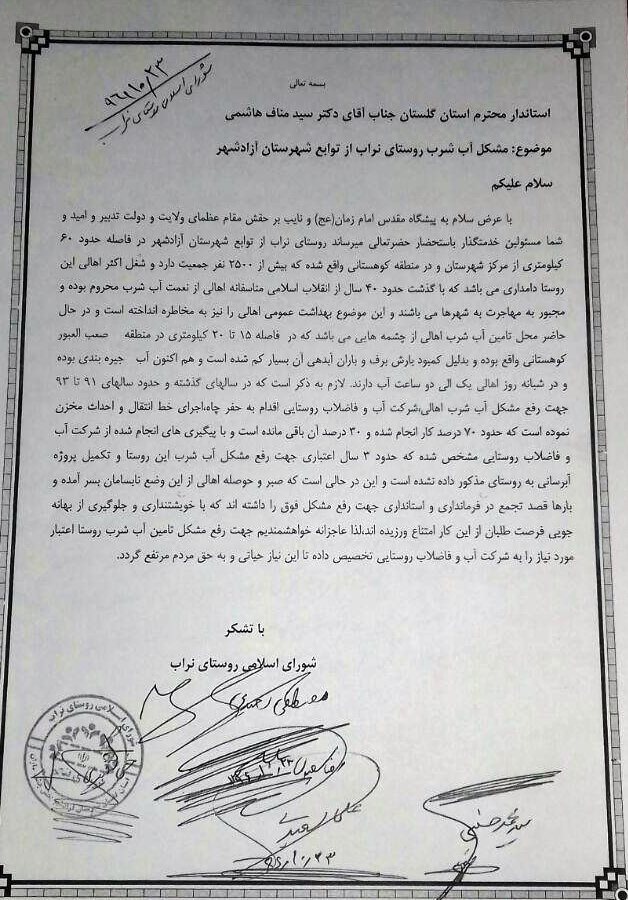 بسمه تعالی
۹۶/۱۰/۲۳
شورای اسلامی روستای نراب
استاندار محترم استان گلستان جناب آقای دکتر سید مناف هاشمی
موضوع: مشکل آب شرب روستای نراب از توابع شهرستان آزادشهر
سلام علیکم
با عرض سلام به پیشگاه مقدس امام زمان(عج) و نایب بر حقش مقام عظمای ولایت و دولت تدبیر و امید و
شما مسئولین خدمتگذار باستحضار حضرتعالی میرساند روستای نراب از توابع شهرستان آزادشهر در فاصله حدود ۶۰
کیلومتری از مرکز شهرستان و در منطقه کوهستانی واقع شده که بیش از ۲۵۰۰ نفر جمعیت دارد و شغل اکثر اهالی این
روستا دامداری می باشد که با گذشت حدود ۴۰ سال از انقلاب اسلامی متاسفانه اهالی از نعمت آب شرب محروم بوده و
مجبور به مهاجرت به شهرها می باشند و این موضوع بهداشت عمومی اهالی را نیز به مخاطره انداخته است و در حال
حاضر محل تامین آب شرب اهالی از چشمه هایی می باشد که در فاصله ۱۵ تا ۲۰ کیلومتری در منطقه صعب العبور
کوهستانی واقع بوده و بدلیل کمبود بارش برف و باران آبدهی آن بسیار کم شده است و هم اکنون آب جیره بندی بوده
و در شبانه روز اهالی یک الی دو ساعت آب دارند. لازم به ذکر است که در سالهای گذشته و حدود سالهای ۹۱ تا ۹۳
جهت رفع مشکل آب شرب اهالی،شرکت آب و فاضلاب روستایی اقدام به حفر چاه،اجرای خط انتقال و احداث مخزن
نموده است که حدود ۷۰ درصد کار انجام شده و ۳۰ درصد آن باقی مانده است و با پیگیری های انجام شده از شرکت آب
و فاضلاب روستایی مشخص شده که حدود ۳ سال اعتباری جهت رفع مشکل آب شرب این روستا و تکمیل پروژه
آبرسانی به روستای مذکور داده نشده است و این در حالی است که صبر و حوصله اهالی از این وضع نابسامان بسر آمده و
بارها قصد تجمع در فرمانداری و استانداری جهت رفع مشکل فوق را داشته اند که با خویشتنداری و جلوگیری از بهانه
جویی فرصت طلبان از این کار امتناع ورزیده اند،لذا عاجزانه خواهشمندیم جهت رفع مشکل تامین آب شرب روستا اعتبار
مورد نیاز را به شرکت آب و فاضلاب روستایی تخصیص داده تا این نیاز حیاتی و به حق مردم مرتفع گردد.
با تشکر
شورای اسلامی روستای نراب
مصطفی سعیدی
علی سعیدی
سید محمد حسینی
شورای اسلامی روستای نراب